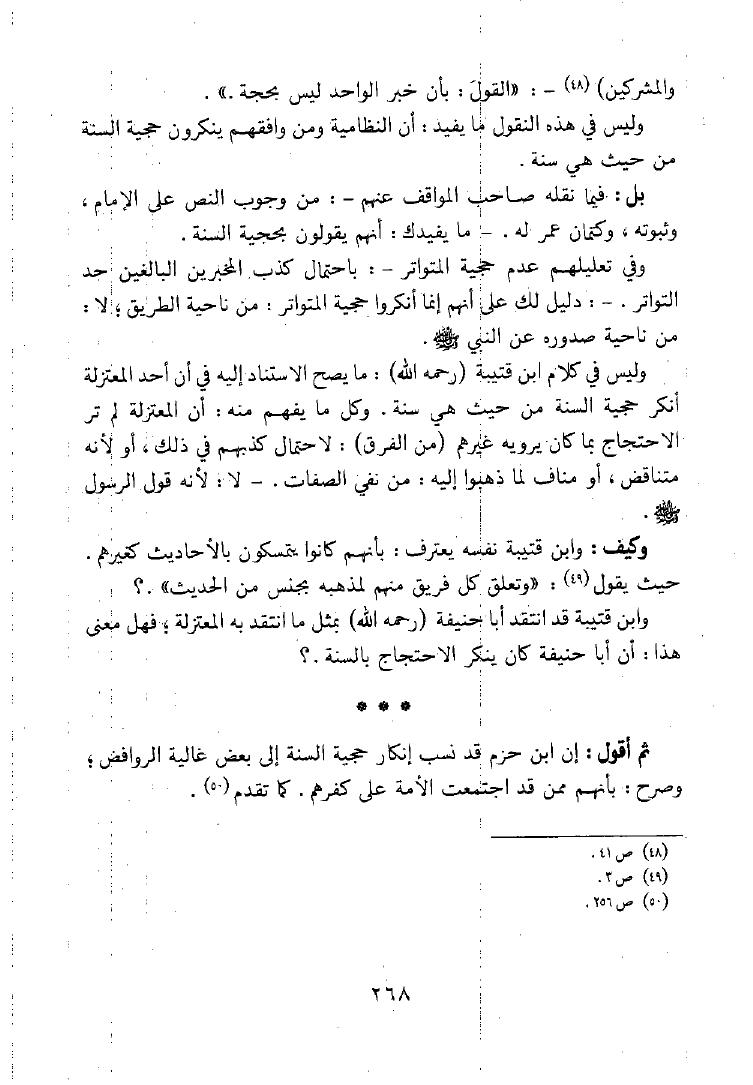 والمشركين) (٤٨) - : «القولَ : بأن خبر الواحد ليس بحجة .» .
وليس في هذه النقول ما يفيد : أن النظامية ومن وافقهم ينكرون حجية السنة
من حيث هي سنة .
بل : فيما نقله صاحب المواقف عنهم - : من وجوب النص على الإمام ،
وثبوته ، وكتمان عمر له . - ما يفيدك : أنهم يقولون بحجية السنة .
وفي تعليلهم عدم حجية المتواتر - : باحتمال كذب المخبرين البالغين حد
التواتر . - : دليل لك على أنهم إنما أنكروا حجية المتواتر : من ناحية الطريق ؛ لا :
من ناحية صدوره عن النبي ﷺ .
وليس في كلام ابن قتيبة (رحمه الله) : ما يصح الاستناد إليه في أن أحد المعتزلة
أنكر حجية السنة من حيث هي سنة . وكل ما يفهم منه : أن المعتزلة لم تر
الاحتجاج بما كان يرويه غيرهم (من الفرق) : لاحتمال كذبهم في ذلك ، أو لأنه
متناقض ، أو مناف لما ذهبوا إليه : من نفي الصفات . - لا : لأنه قول الرسول
ﷺ .
وكيف : وابن قتيبة نفسه يعترف : بأنهم كانوا يتمسكون بالأحاديث كغيرهم .
حيث يقول (٤٩) : «وتعلق كل فريق منهم لمذهبه بجنس من الحديث» .؟
وابن قتيبة قد انتقد أبا حنيفة (رحمه الله) بمثل ما انتقد به المعتزلة ؛ فهل معنى
هذا : أن أبا حنيفة كان ينكر الاحتجاج بالسنة .؟
* * *
ثم أقول : إن ابن حزم قد نسب إنكار حجية السنة إلى بعض غالية الروافض ؛
وصرح : بأنهم ممن قد اجتمعت الأمة على كفرهم . كما تقدم (٥٠) .
(٤٨) ص ٤١ .
(٤٩) ص ٣ .
(٥٠) ص ٢٥٦ .
٢٦٨